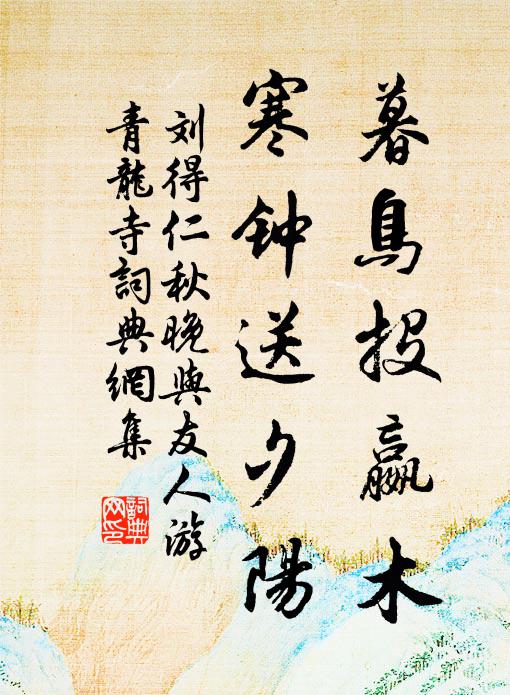 暮鳥投羸木
寒钟送夕陽
刘得仁秋晚與友人游
青龍寺詞典網集
詞典网印